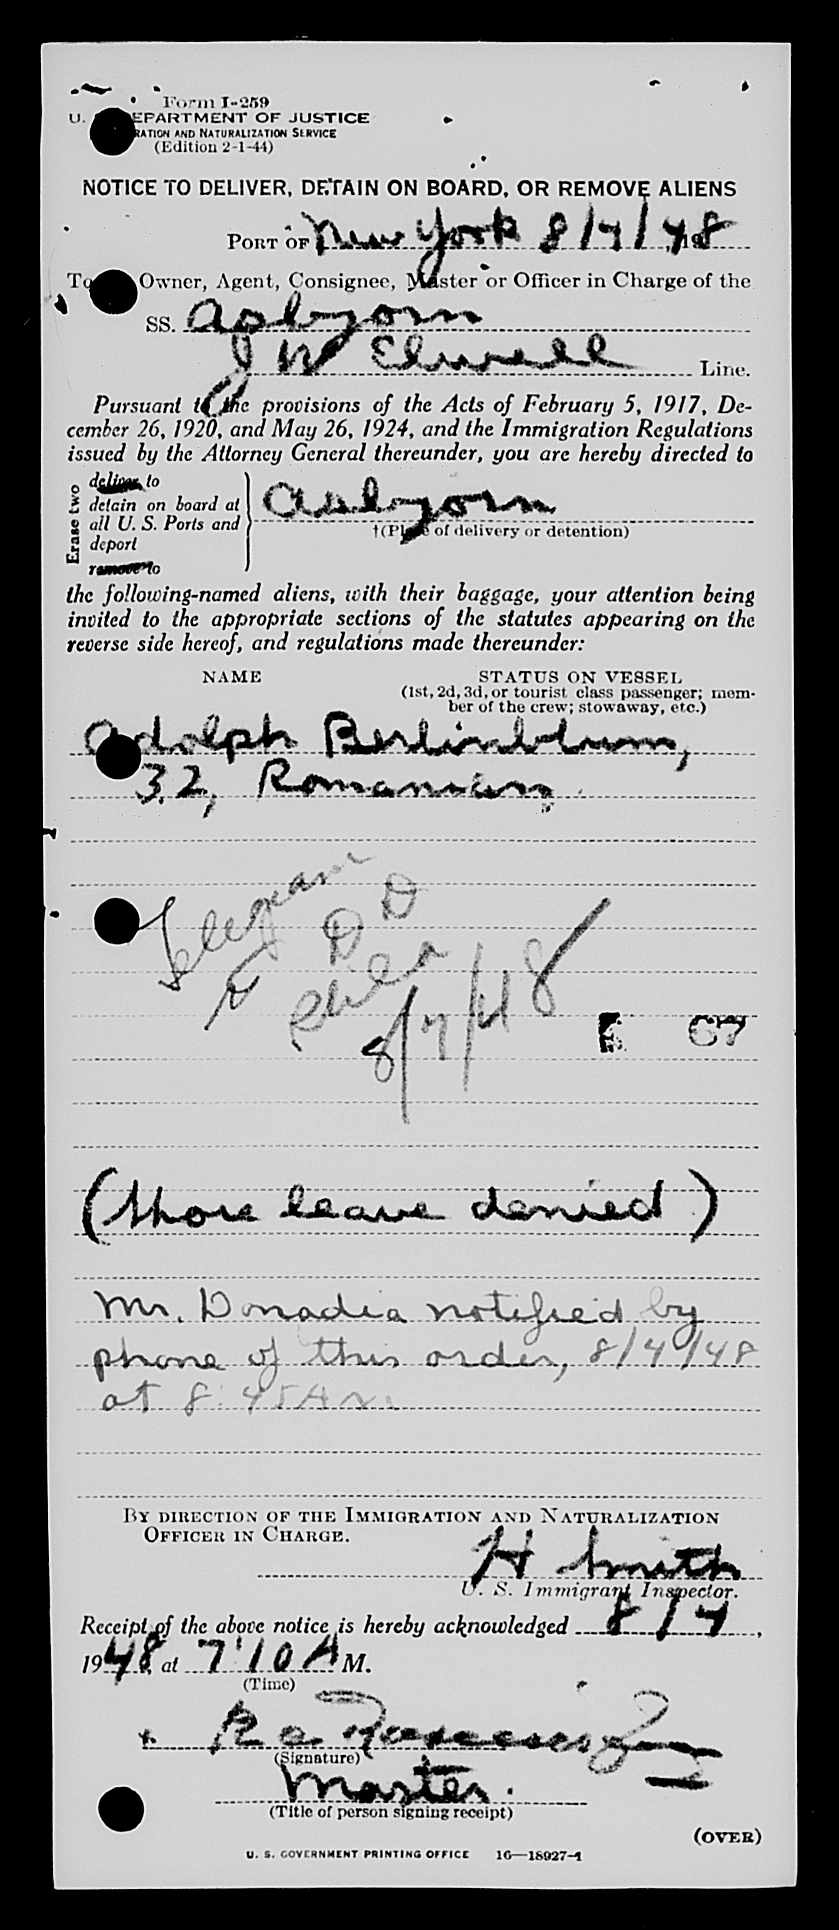 Form I-259
U. DEPARTMENT OF JUSTICE
RATION AND NATURALIZATION SERVICE
(Edition 2-1-44)
NOTICE TO DELIVER, DETAIN ON BOARD, OR REMOVE ALIENS
PORT OF New York 8/4/48, 19
To Owner, Agent, Consignee, Master or Officer in Charge of the
SS. Asbyorn
J W Elwell Line.
Pursuant to the provisions of the Acts of February 5, 1917, De-
cember 26, 1920, and May 26, 1924, and the Immigration Regulations
issued by the Attorney General thereunder, you are hereby directed to
Erase two
deliver to
detain on board at
all U. S. Ports and
deport
remove to
Asbyorn
†(Place of delivery or detention)
the following-named aliens, with their baggage, your attention being
invited to the appropriate sections of the statutes appearing on the
reverse side hereof, and regulations made thereunder:
NAME STATUS ON VESSEL
(1st, 2d, 3d, or tourist class passenger; mem-
ber of the crew; stowaway, etc.)
Adolph Berlinblum,
32, Romanian,
Telegram
DD
Phila
8/7/48
67
(Shore leave denied)
Mr. Donadia notified by
phone of this order, 8/4/48
at 8:45 AM.
BY DIRECTION OF THE IMMIGRATION AND NATURALIZATION
OFFICER IN CHARGE.
H Smith
U. S. Immigrant Inspector.
Receipt of the above notice is hereby acknowledged 8/4,
1948 at 7:10 A M.
(Time)
(Signature)
Master.
(Title of person signing receipt)
(OVER)
U. S. GOVERNMENT PRINTING OFFICE 16—18927-1